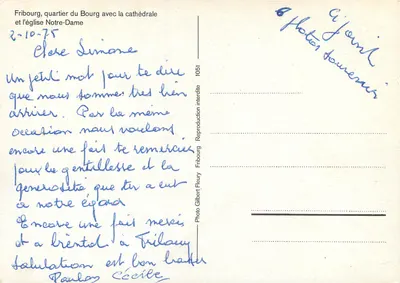 Fribourg, quartier du Bourg avec la cathédrale
et l'église Notre-Dame
2-10-75
Chere Simone
Un petit mot pour te dire
que nous sommes tres bien
arriver. Par la même
occasion nous voulons
encore une fois te remercier
pour la gentillesse et la
generosité que tu a eut
a notre égard
Encore une fois mercis
et a bientot à Fribourg
salutation est bon baiser
Cécile
1051
Reproduction interdite
Photo Gilbert Fleury Fribourg
Ci joint
6 photos souvenir